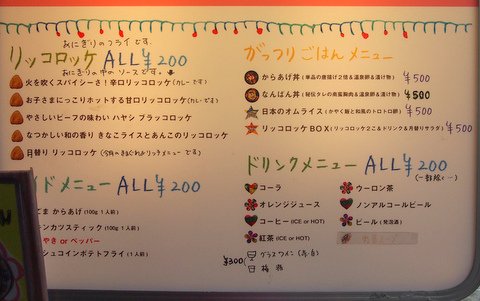 おにぎりのフライです。
リッコロッケ ALL ¥200
おにぎりの中のソースです。
火を吹くスパイシーさ!辛口リッコロッケ(カレーです)
お子さまにっこりホットする甘口リッコロッケ(カレーです)
やさしいビーフの味わい ハヤシ ブラッコロッケ
なつかしい和の香り きなこライスとあんこのリッコロッケ
日替り リッコロッケ
イドメニュー ALL ¥200
どま からあげ (100g 1人前)
キンカツスティック (100g 1人前)
やき or ペッパー
シュコインポテトフライ (1人前)
がっつりごはんメニュー
からあげ丼 (単品の唐揚げ2倍&温泉卵&漬け物) ¥500
なんばん丼 (秘伝タレの南蛮鶏肉&温泉卵&漬け物) ¥500
日本のオムライス (かやく飯と和風のトロトロ卵) ¥500
リッコロッケBOX (リッコロッケ2こ&ドリンク&月替りサラダ) ¥500
ドリンクメニュー ALL ¥200
コーラ
オレンジジュース
コーヒー (ICE or HOT)
紅茶 (ICE or HOT)
ウーロン茶
ノンアルコールビール
ビール (発泡酒)
¥300 グラスワイン (赤・白)
梅酒